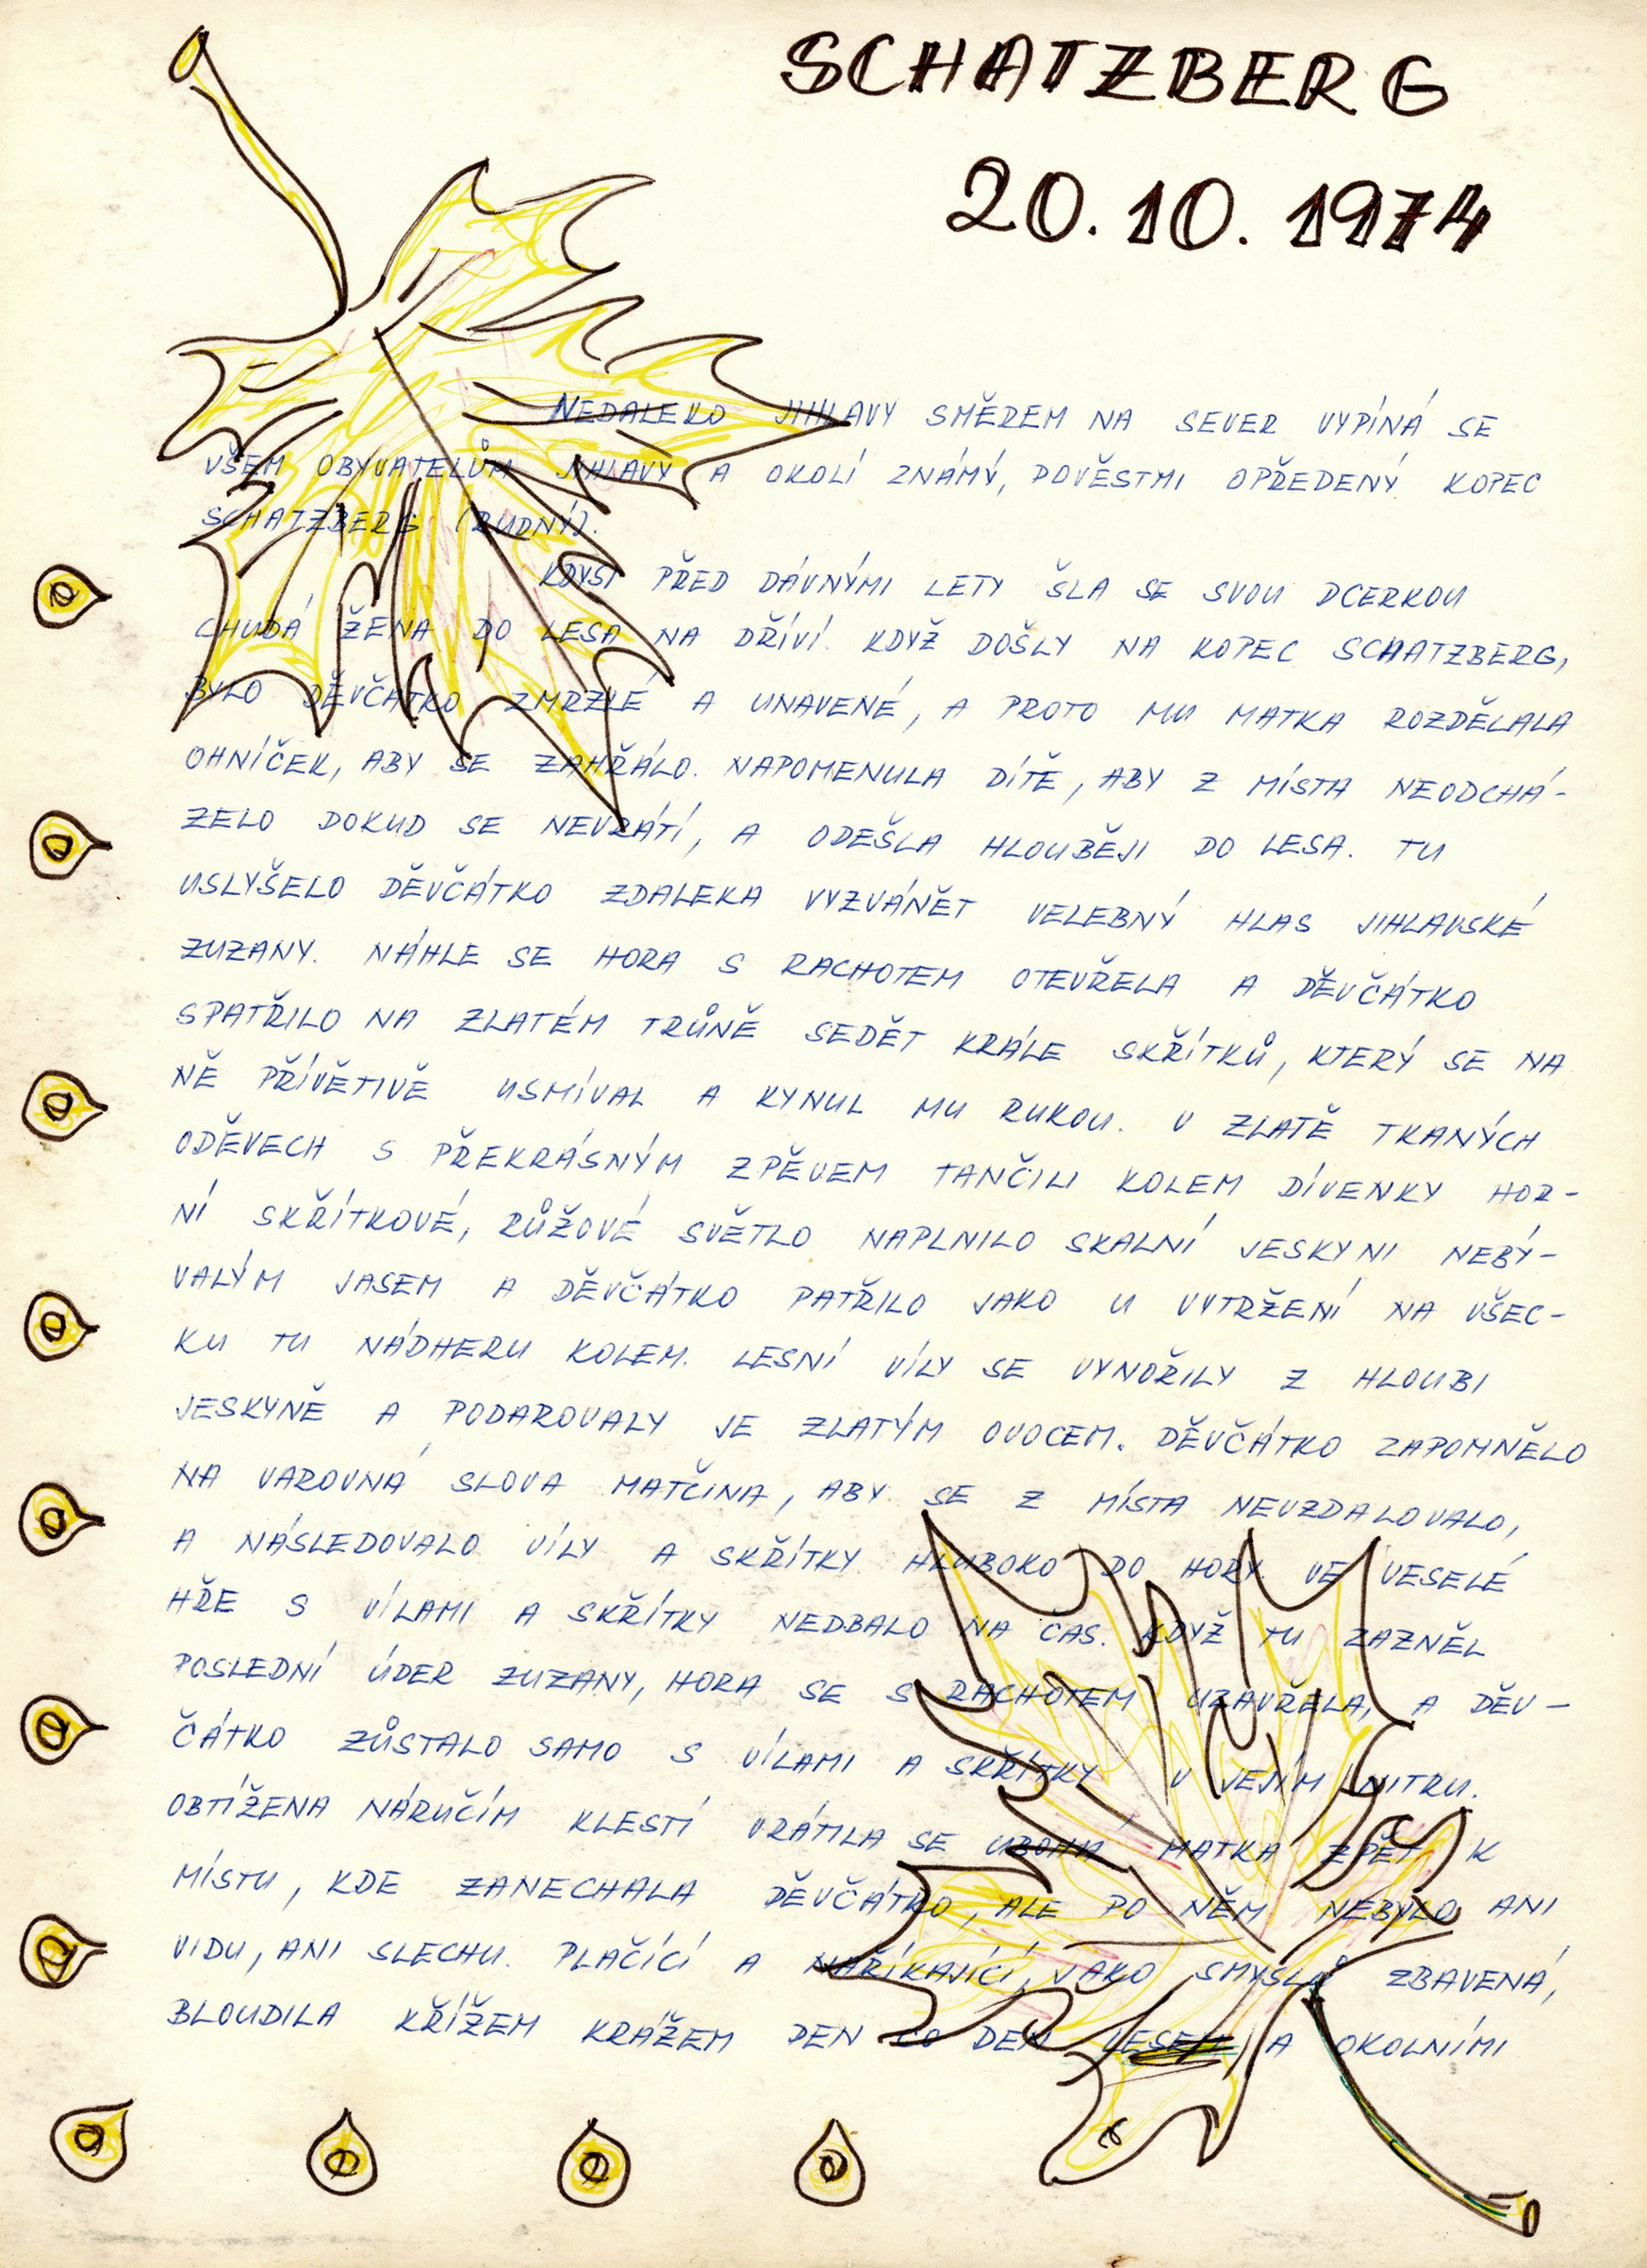 SCHATZBERG
20. 10. 1974
NEDALEKO JIHLAVY SMĚREM NA SEVER VYPÍNÁ SE
VŠEM OBYVATELŮM JIHLAVY A OKOLÍ ZNÁMÝ, POVĚSTMI OPŘEDENÝ KOPEC
SCHATZBERG (RUDNÝ).
KDYSI PŘED DÁVNÝMI LETY ŠLA SE SVOU DCERKOU
CHUDÁ ŽENA DO LESA NA DŘÍVÍ. KDYŽ DOŠLY NA KOPEC SCHATZBERG,
BYLO DĚVČÁTKO ZMRZLÉ A UNAVENÉ, A PROTO MU MATKA ROZDĚLALA
OHNÍČEK, ABY SE ZAHŘÁLO. NAPOMENULA DÍTĚ, ABY Z MÍSTA NEODCHÁ-
ZELO DOKUD SE NEVRÁTÍ, A ODEŠLA HLOUBĚJI DO LESA. TU
USLYŠELO DĚVČÁTKO ZDALEKA VYZVÁNĚT VELEBNÝ HLAS JIHLAVSKÉ
ZUZANY. NÁHLE SE HORA S RACHOTEM OTEVŘELA A DĚVČÁTKO
SPATŘILO NA ZLATÉM TRŮNĚ SEDĚT KRÁLE SKŘÍTKŮ, KTERÝ SE NA
NĚ PŘÍVĚTIVĚ USMÍVAL A KYNUL MU RUKOU. V ZLATĚ TKANÝCH
ODĚVECH S PŘEKRÁSNÝM ZPĚVEM TANČILI KOLEM DÍVENKY HOR-
NÍ SKŘÍTKOVÉ, RŮŽOVÉ SVĚTLO NAPLNILO SKALNÍ JESKYNI NEBÝ-
VALÝM JASEM A DĚVČÁTKO PATŘILO JAKO U VYTRŽENÍ NA VŠEC-
KU TU NÁDHERU KOLEM. LESNÍ VÍLY SE VYNOŘILY Z HLOUBI
JESKYNĚ A PODAROVALY JE ZLATÝM OVOCEM. DĚVČÁTKO ZAPOMNĚLO
NA VAROVNÁ SLOVA MATČINA, ABY SE Z MÍSTA NEVZDALOVALO,
A NÁSLEDOVALO VÍLY A SKŘÍTKY HLUBOKO DO HORY. VE VESELÉ
HŘE S VÍLAMI A SKŘÍTKY NEDBALO NA ČAS. KDYŽ TU ZAZNĚL
POSLEDNÍ ÚDER ZUZANY, HORA SE S RACHOTEM UZAVŘELA, A DĚV-
ČÁTKO ZŮSTALO SAMO S VÍLAMI A SKŘÍTKY V JEJÍM NITRU.
OBTÍŽENA NÁRUČÍM KLESTÍ VRÁTILA SE UBOHÁ MATKA ZPĚT K
MÍSTU, KDE ZANECHALA DĚVČÁTKO, ALE PO NĚM NEBYLO ANI
VIDU, ANI SLECHU. PLAČÍCÍ A NAŘÍKAJÍCÍ, JAKO SMYSLŮ ZBAVENÁ,
BLOUDILA KŘÍŽEM KRÁŽEM DEN CO DEN LESEM A OKOLNÍMI